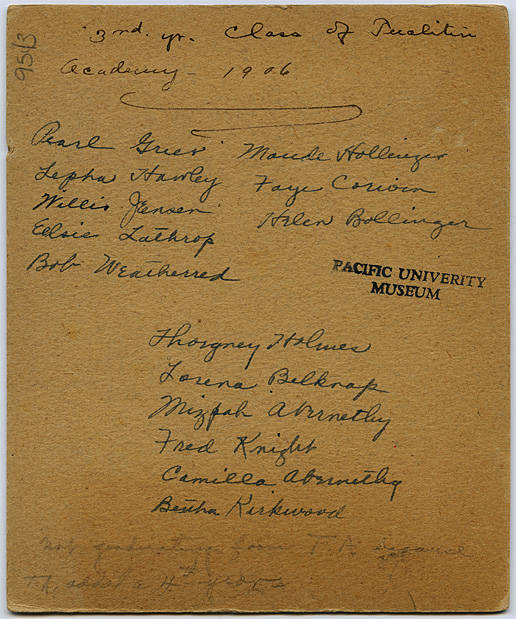 9513
3nd. yr. Class of Tualitin
Academy - 1906
Pearl Grier
Lepha Hawley
Willis Jensen
Elsie Lathrop
Bob Weatherred
Maude Hollinger
Faye Corwin
Helen Bollinger
PACIFIC UNIVERITY
MUSEUM
Thorgney Holmes
Lorena Belknap
Mizpah Abernethy
Fred Knight
Camilla Abernethy
Bertha Kirkwood
Not graduating from T.A. because
T.A. added a 4th